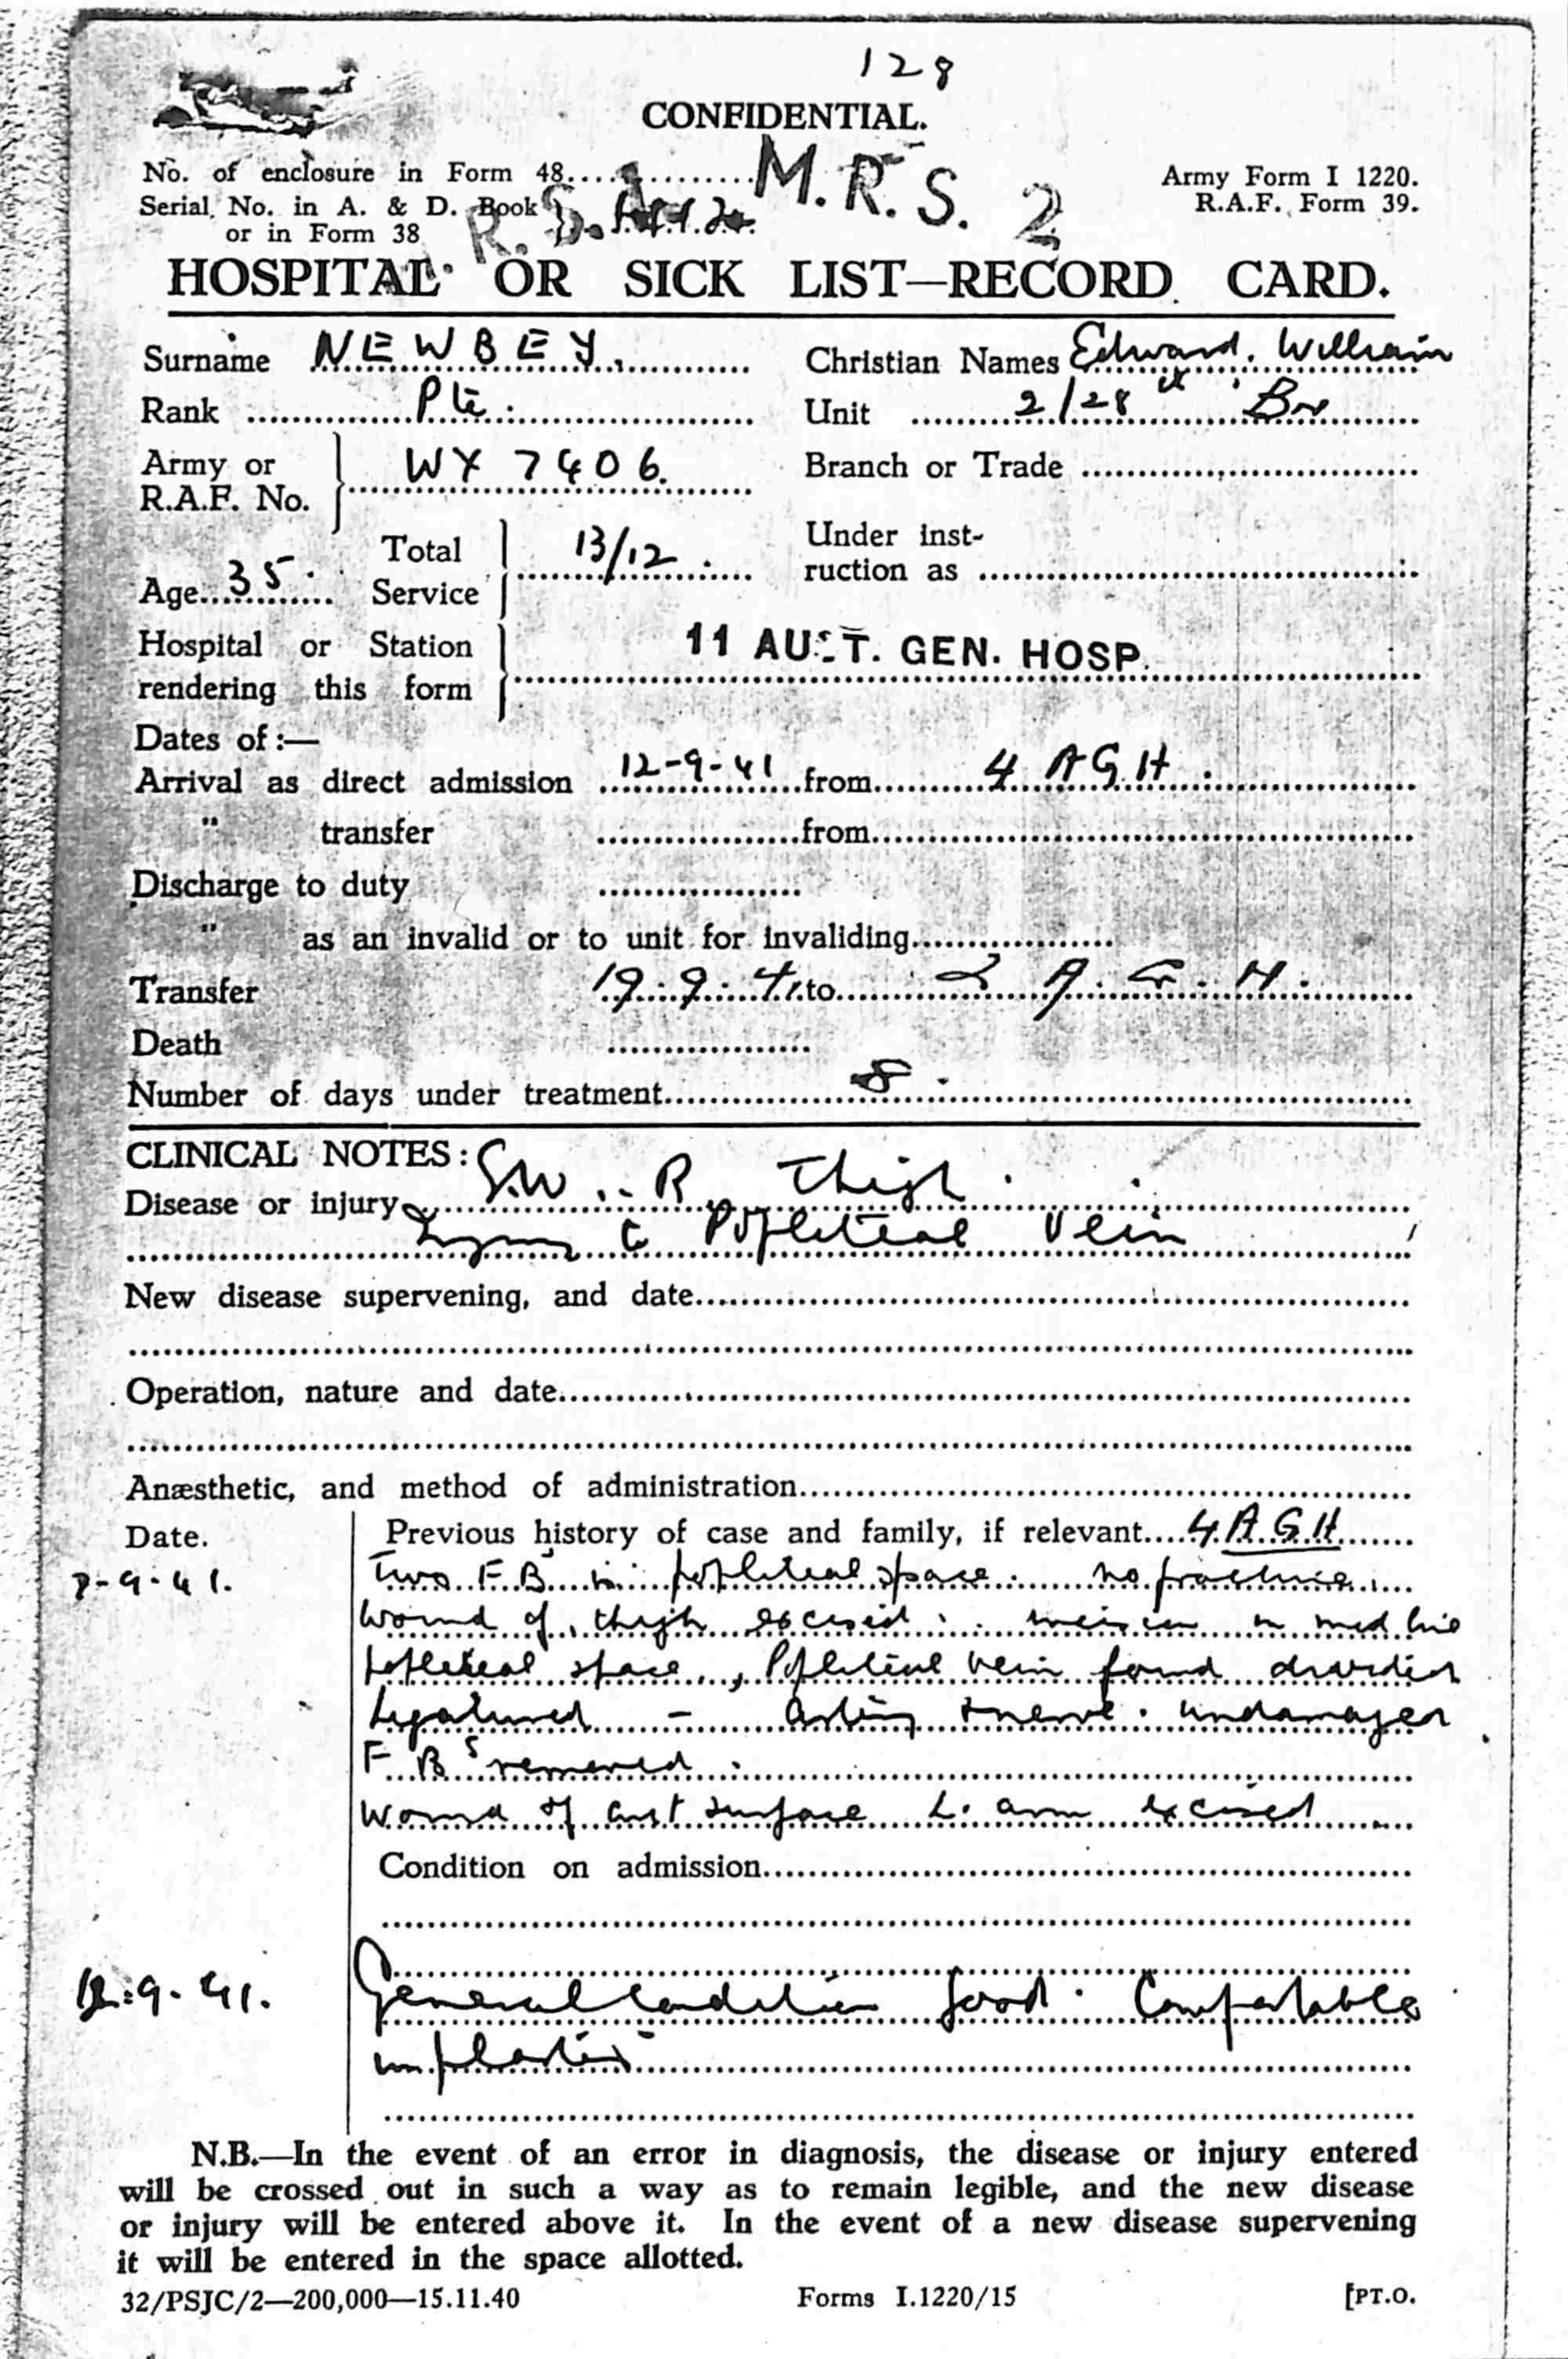 128
CONFIDENTIAL.
No. of enclosure in Form 48
M.R.S. 2
Army Form I 1220.
Serial No. in A. & D. Book
R.A.F. Form 39.
or in Form 38
HOSPITAL OR SICK LIST—RECORD CARD.
Surname NEWBEY. Christian Names Edward. William
Rank Pte. Unit 2/28th Bn
Army or R.A.F. No. WX 7406. Branch or Trade
Age 35. Total Service 13/12. Under instruction as
Hospital or Station rendering this form 11 AUST. GEN. HOSP.
Dates of:—
Arrival as direct admission 12-9-41 from 4 AGH.
" transfer from
Discharge to duty
" as an invalid or to unit for invaliding
Transfer 19.9.41 to A.G.H.
Death
Number of days under treatment 8.
CLINICAL NOTES:
Disease or injury S.W. R. Thigh.
Injury to Popliteal Vein
New disease supervening, and date
Operation, nature and date
Anæsthetic, and method of administration
Date. Previous history of case and family, if relevant 4.A.G.H
-9-41. Two F.B's in popliteal space. no fracture.
Wound of thigh excised. incision in med line
popliteal space, Popliteal vein found divided
Ligatured - Artery + nerve. undamaged
F.Bs removed.
Wound of surface L. arm excised
Condition on admission
12.9.41. General condition good. Comfortable
in plaster
N.B.—In the event of an error in diagnosis, the disease or injury entered
will be crossed out in such a way as to remain legible, and the new disease
or injury will be entered above it. In the event of a new disease supervening
it will be entered in the space allotted.
32/PSJC/2—200,000—15.11.40 Forms I.1220/15 [PT.O.